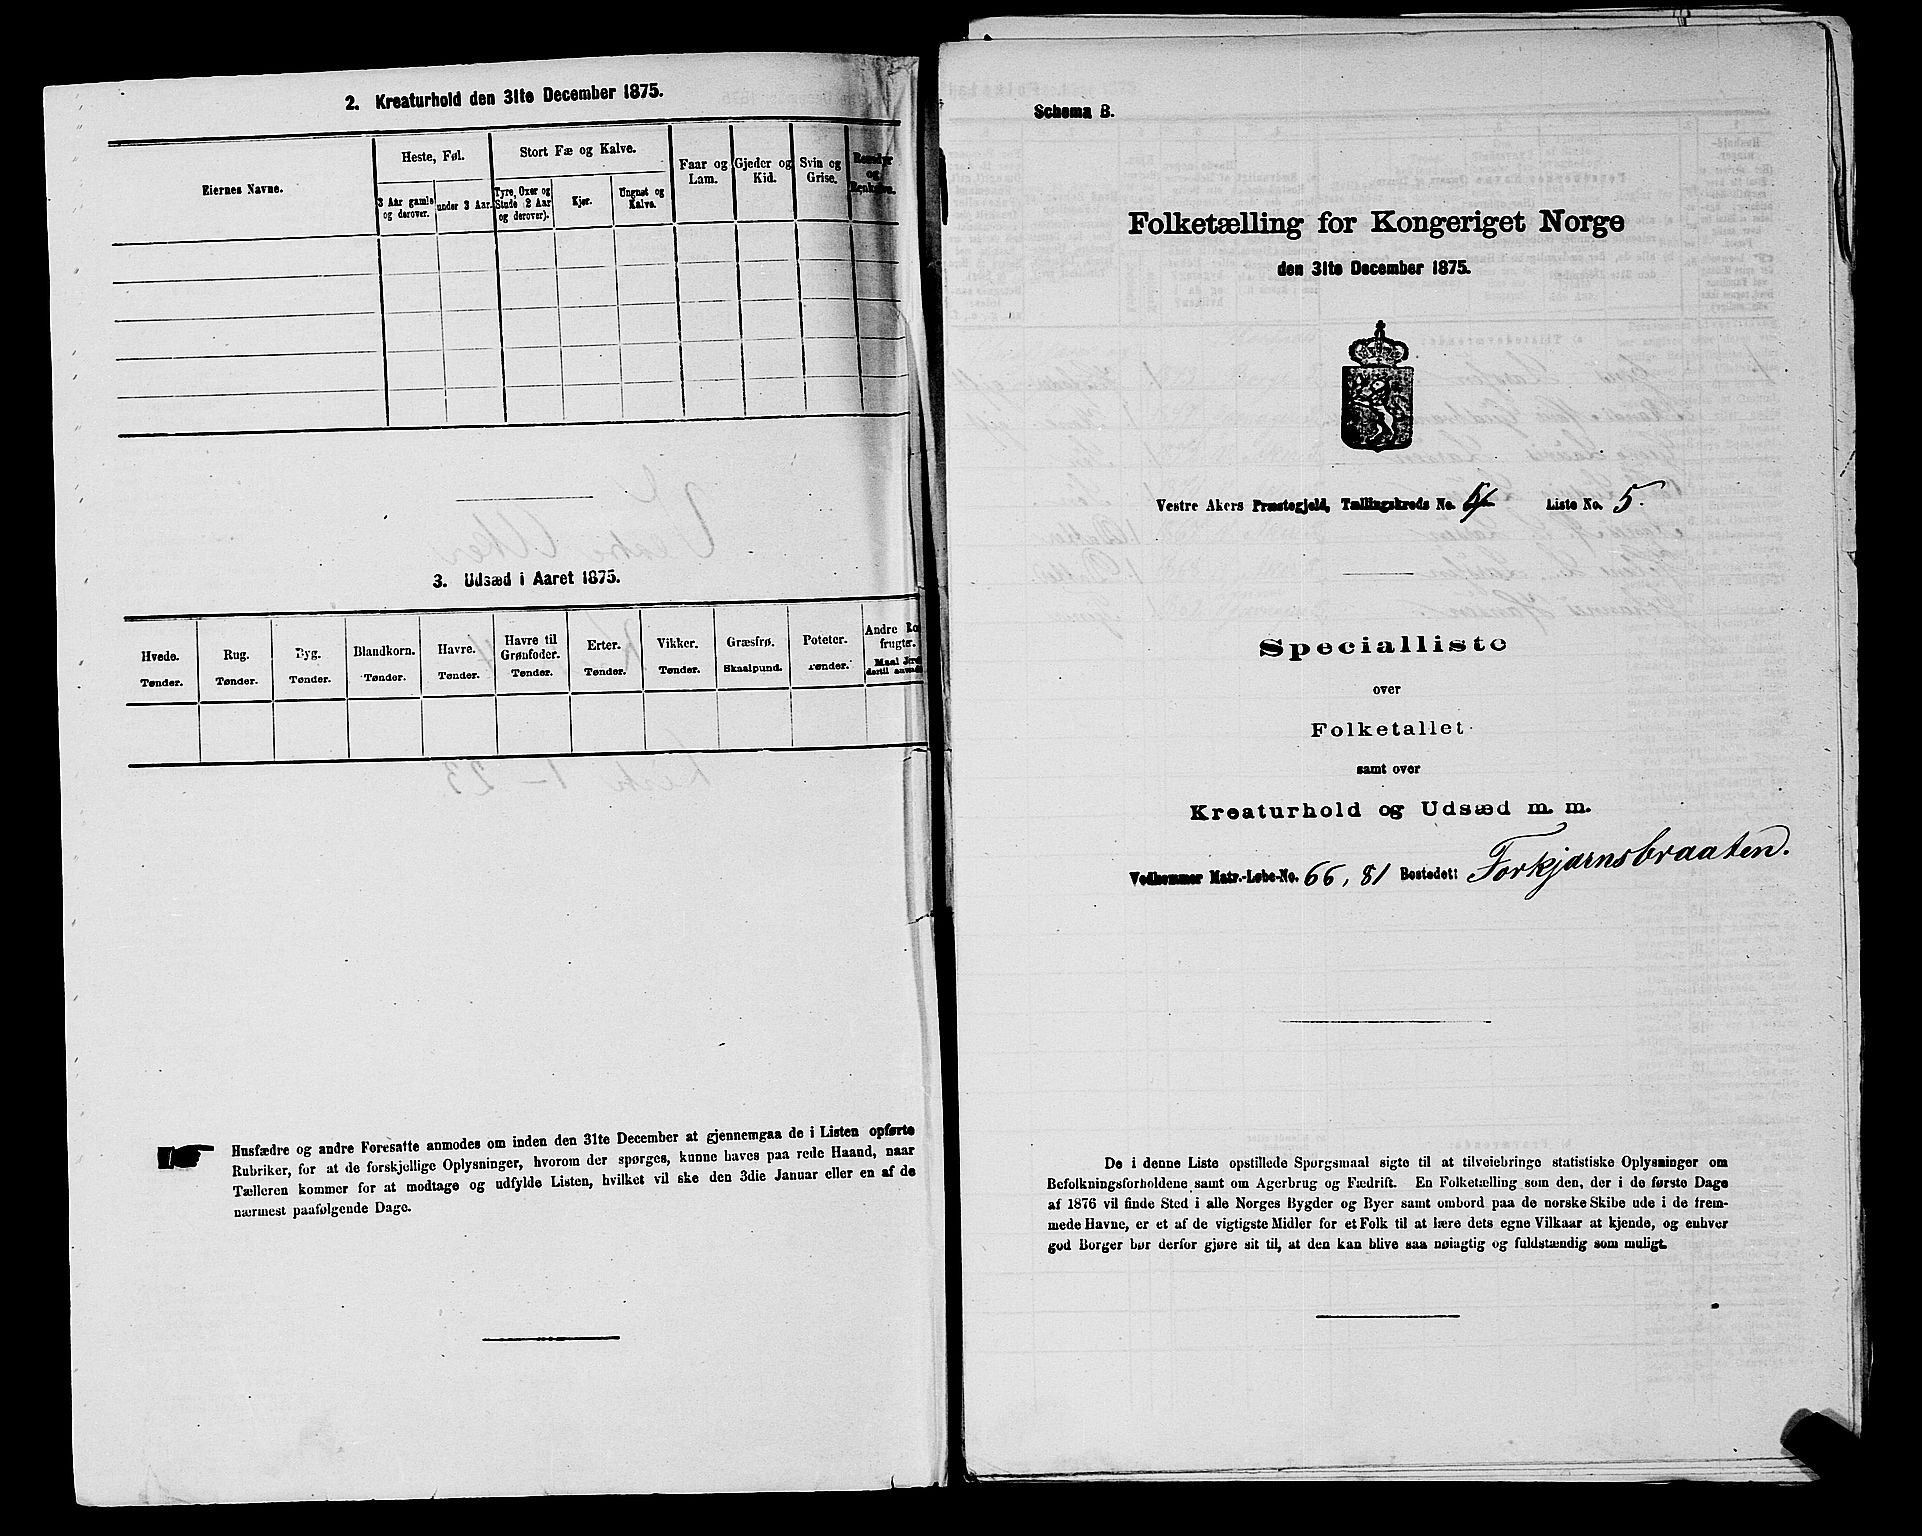 2. Kreaturhold den 31te December 1875.
Eiernes Navne.
Heste, Føl.
Stort Fæ og Kalve.
Faar og Lam.
Gjeder og Kid.
Svin og Grise.
Rensdyr og Renkalve.
3 Aar gamle og derover.
under 3 Aar.
Tyre, Oxer og Stude 2 Aar og derover).
Kjør.
Ungnøt og Kalve.
3. Udsæd i Aaret 1875.
Hvede. Tønder.
Rug. Tønder.
Byg. Tønder.
Blandkorn. Tønder.
Havre. Tønder.
Havre til Grønfoder. Tønder.
Erter. Tønder.
Vikker. Tønder.
Græsfrø. Skaalpund.
Poteter. Tønder.
Andre Ro frugter.
Maal Jord dertil anvendt
Husfædre og andre Foresatte anmodes om inden den 31te December at gjennemgaa de i Listen opførte
Rubriker, for at de forskjellige Oplysninger, hvorom der spørges, kunne haves paa rede Haand, naar
Tælleren kommer for at modtage og udfylde Listen, hvilket vil ske den 3die Januar eller en af de
nærmest paafølgende Dage.
Schema B.
Folketælling for Kongeriget Norge
den 31te December 1875.
Vestre Akers Præstegjeld, Tællingskreds No. Liste No. 5.
Specialliste
over
Folketallet
samt over
Kreaturhold og Udsæd m. m.
Vedkommer Matr.-Løbe-No. 66, 81 Bostedet: Torkjærnsbraaten.
De i denne Liste opstillede Spørgsmaal sigte til at tilveiebringe statistiske Oplysninger om
Befolkningsforholdene samt om Agerbrug og Fædrift. En Folketælling som den, der i de første Dage
af 1876 vil finde Sted i alle Norges Bygder og Byer samt ombord paa de norske Skibe ude i de frem-
mede Havne, er et af de vigtigste Midler for et Folk til at lære dets egne Vilkaar at kjende, og enhver
god Borger bør derfor gjøre sit til, at den kan blive saa nøiagtig og fuldstændig som muligt.